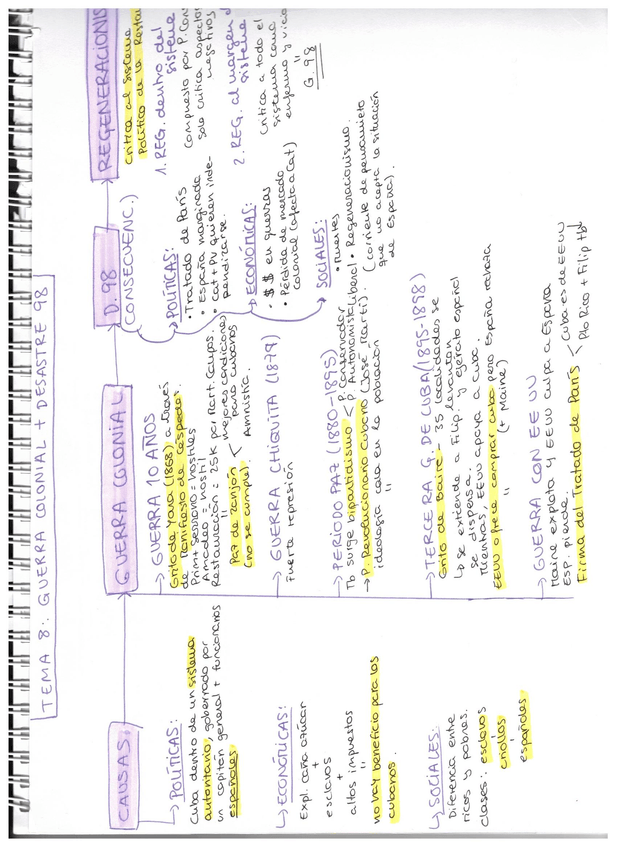 TEMA 8: GUERRA COLONIAL + DESASTRE 98
CAUSAS
→ POLÍTICAS:
Cuba dentro de un sistema
autoritario, gobernado por
un capitán general + funcionarios
españoles
↳ ECONÓMICAS:
Expl. caña azúcar
+
esclavos
+
altos impuestos
"
no hay beneficio para los
cubanos.
↳ SOCIALES:
Diferencia entre
ricos y pobres.
clases: esclavos
criollos
españoles
GUERRA COLONIAL
→ GUERRA 10 AÑOS
Grito de Yara (1868) a través
de Manifiesto de Céspedes.
Prim + Serrano = hostiles
Amadeo = hostil
Restauración: 25K por Mart. Campos.
"
Paz de Zanjón < mejores condiciones
para cubanos
(no se cumple). Amnistía.
→ GUERRA CHIQUITA (1879)
Fuerte represión
→ PERÍODO PAZ (1880-1895)
Tb surge bipartidismo < P. Conservador
Autonomista Liberal
→ P. Revolucionario cubano (José Martí).
ideología cala en la población
→ TERCERA G. DE CUBA (1895-1898)
Grito de Baire - 35 localidades se
levantan
↳ se extiende a Filip. y ejército español
se dispersa.
Mientras, EEUU apoya a Cuba.
"
EEUU ofrece comprar Cuba pero España rechaza
(+ Maine)
→ GUERRA CON EE UU
Maine explota y EEUU culpa a España
Esp. pierde.
Firma del Tratado de París < Cuba es de EEUU
Pto Rico + Filip tb
D. 98
(CONSECUENC.)
→ POLÍTICAS:
• Tratado de París
• España marginada
• Cat + PV quieren inde-
pendizarse.
→ ECONÓMICAS:
• $$ en guerras
• Pérdida de mercado
colonial (afecta a Cat)
→ SOCIALES:
• Muertes
• Regeneracionismo.
(corriente de pensamiento
que no acepta la situación
de España).
REGENERACIONIS
Crítica al sistema
político de la Restau
1. REG. dentro del
sistema
Compuesto por P. Con
solo critica aspectos
negativos
2. REG. al margen d
sistema
Critica a todo el
sistema como
enfermo y vici
"
G. 98